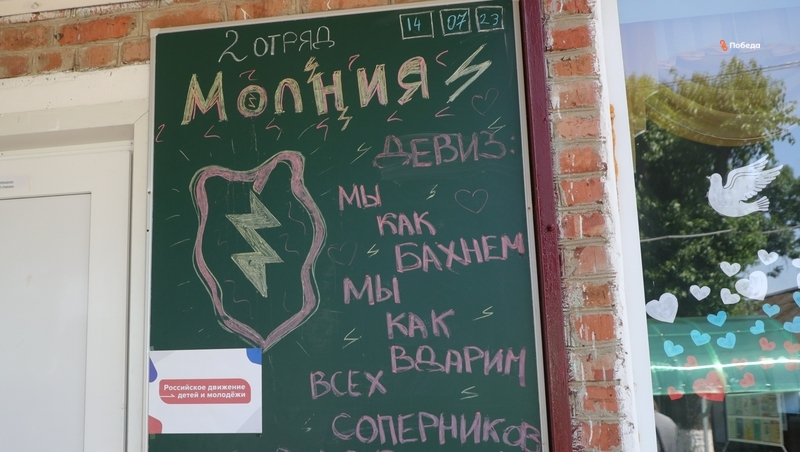 2 ОТРЯД
14 07 23
МОЛНИЯ
ДЕВИЗ:
МЫ
КАК
БАХНЕМ
МЫ
КАК
ВДАРИМ
ВСЕХ
СОПЕРНИКОВ
Российское движение
детей и молодёжи
Победа